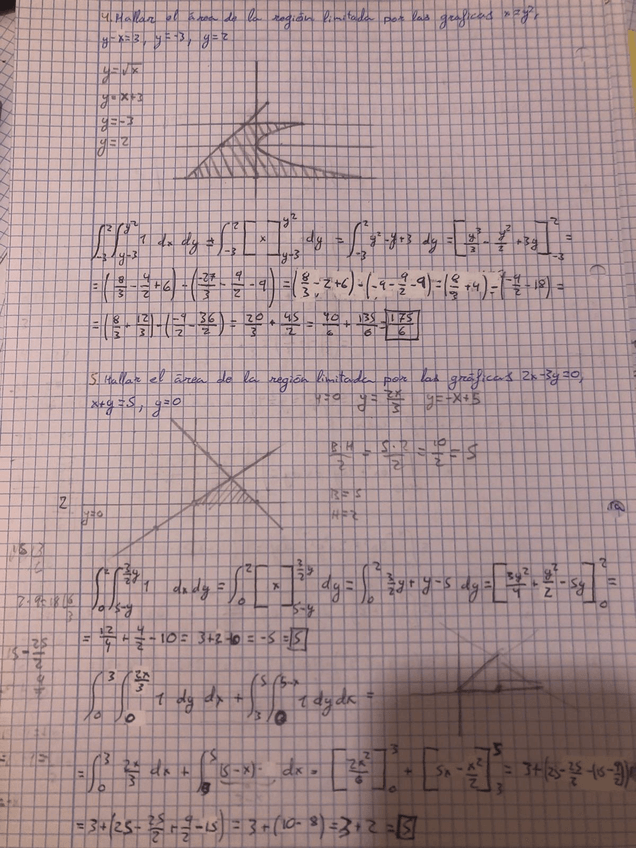 4. Hallar el área de la región limitada por las gráficas x=y²,
y-x=3, y=-3, y=2
y=√x
y=x+3
y=-3
y=2
∫_{-3}^{2} ∫_{y-3}^{y²} 1 dx dy = ∫_{-3}^{2} [x]_{y-3}^{y²} dy = ∫_{-3}^{2} y²-y+3 dy = [y³/3 - y²/2 + 3y]_{-3}^{2} =
= (8/3 - 4/2 + 6) - (-27/3 - 9/2 - 9) = (8/3 - 2 + 6) - (-9 - 9/2 - 9) = (8/3 + 4) - (-9/2 - 18) =
= (8/3 + 12/3) - (-9/2 - 36/2) = 20/3 + 45/2 = 40/6 + 135/6 = 175/6
5. Hallar el área de la región limitada por las gráficas 2x-3y=0,
x+y=5, y=0
y=0 y=2x/3 y=-x+5
B·H/2 = 5·2/2 = 10/2 = 5
B=5
H=2
2
y=0
∫_{0}^{2} ∫_{5-y}^{3/2 y} 1 dx dy = ∫_{0}^{2} [x]_{5-y}^{3/2 y} dy = ∫_{0}^{2} 3/2 y + y - 5 dy = [3y²/4 + y²/2 - 5y]_{0}^{2} =
= 12/4 + 4/2 - 10 = 3+2-10 = -5 = 5
∫_{0}^{3} ∫_{0}^{2x/3} 1 dy dx + ∫_{3}^{5} ∫_{0}^{5-x} 1 dy dx =
= ∫_{0}^{3} 2x/3 dx + ∫_{3}^{5} (5-x) dx = [2x²/6]_{0}^{3} + [5x - x²/2]_{3}^{5} = 3+(25 - 25/2 - (15 - 9/2))
= 3+(25 - 25/2 + 9/2 - 15) = 3+(10-8) = 3+2 = 5